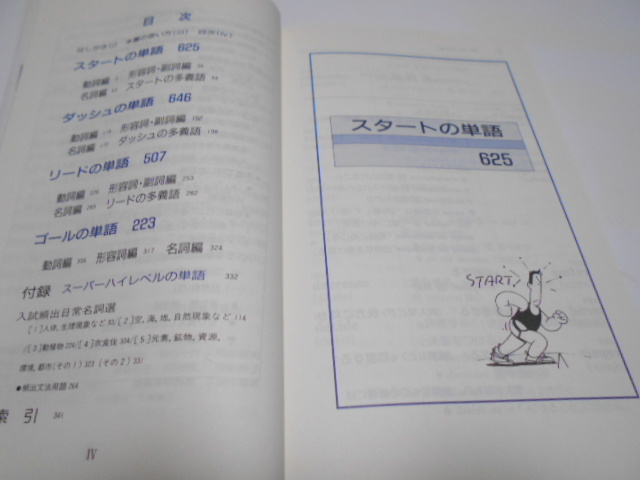 目 次
はしがき
本書の使い方
スタートの単語 625
動詞編 形容詞・副詞編
名詞編 スタートの多義語
ダッシュの単語 646
動詞編 形容詞・副詞編 192
名詞編 ダッシュの多義語
リードの単語 507
動詞編 形容詞・副詞編 253
名詞編 リードの多義語 282
ゴールの単語 223
動詞編 形容詞編 317 名詞編 324
付録 スーパーハイレベルの単語 332
入試頻出日常名詞選
[1]人体, 生理現象など /[2]空, 海, 地, 自然現象など 114
/[3]動植物 /[4]衣食住 /[5]元素, 鉱物, 資源,
環境, 都市(その1) 323 (その2) 331
●頻出文法用語 264
索 引 341
IV
スタートの単語
625
START!